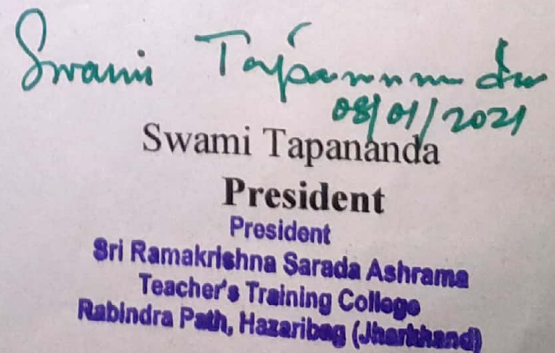 Swami Tapananda
08/01/2021
Swami Tapananda
President
President
Sri Ramakrishna Sarada Ashrama
Teacher's Training College
Rabindra Path, Hazaribag (Jharkhand)